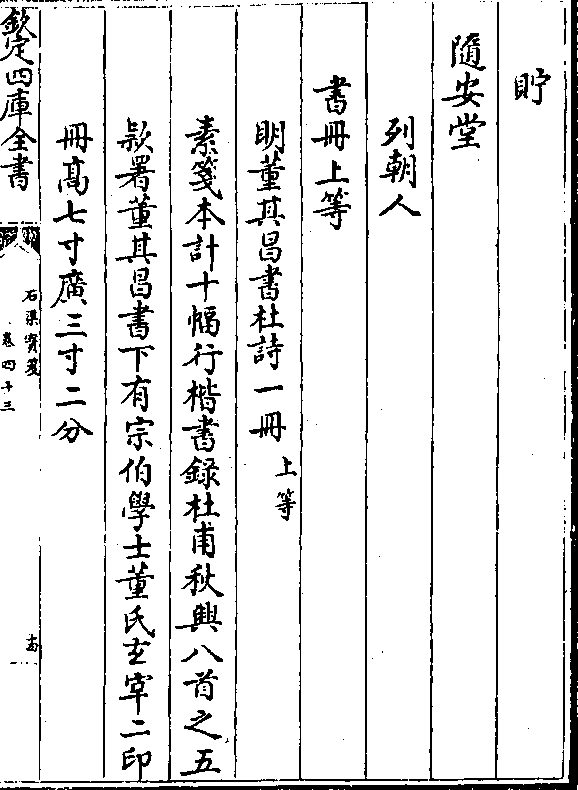 貯
隨安堂
列朝人
書冊上等
明董其昌書杜詩一冊 上等
素箋本計十幅行楷書錄杜甫秋興八首之五
款署董其昌書下有宗伯學士董氏玄宰二印
冊高七寸廣三寸二分
欽定四庫全書
石渠寶笈
卷四十三